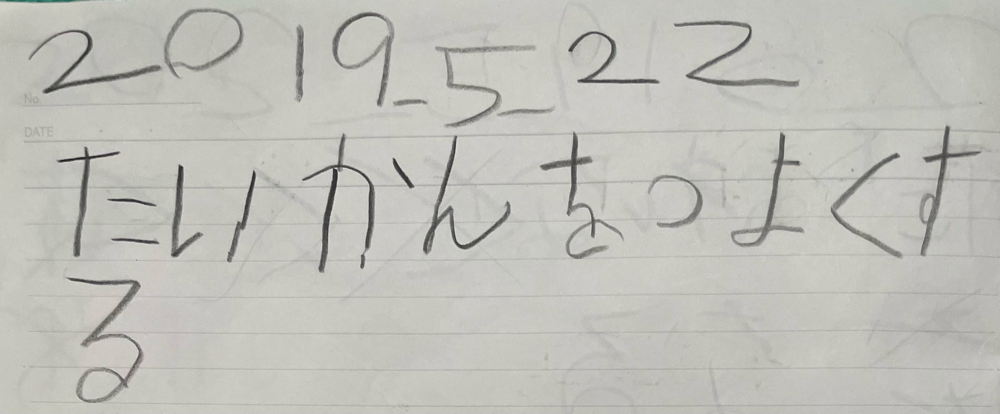 2019_5_22
No.
DATE
たいかんをつよくす
る